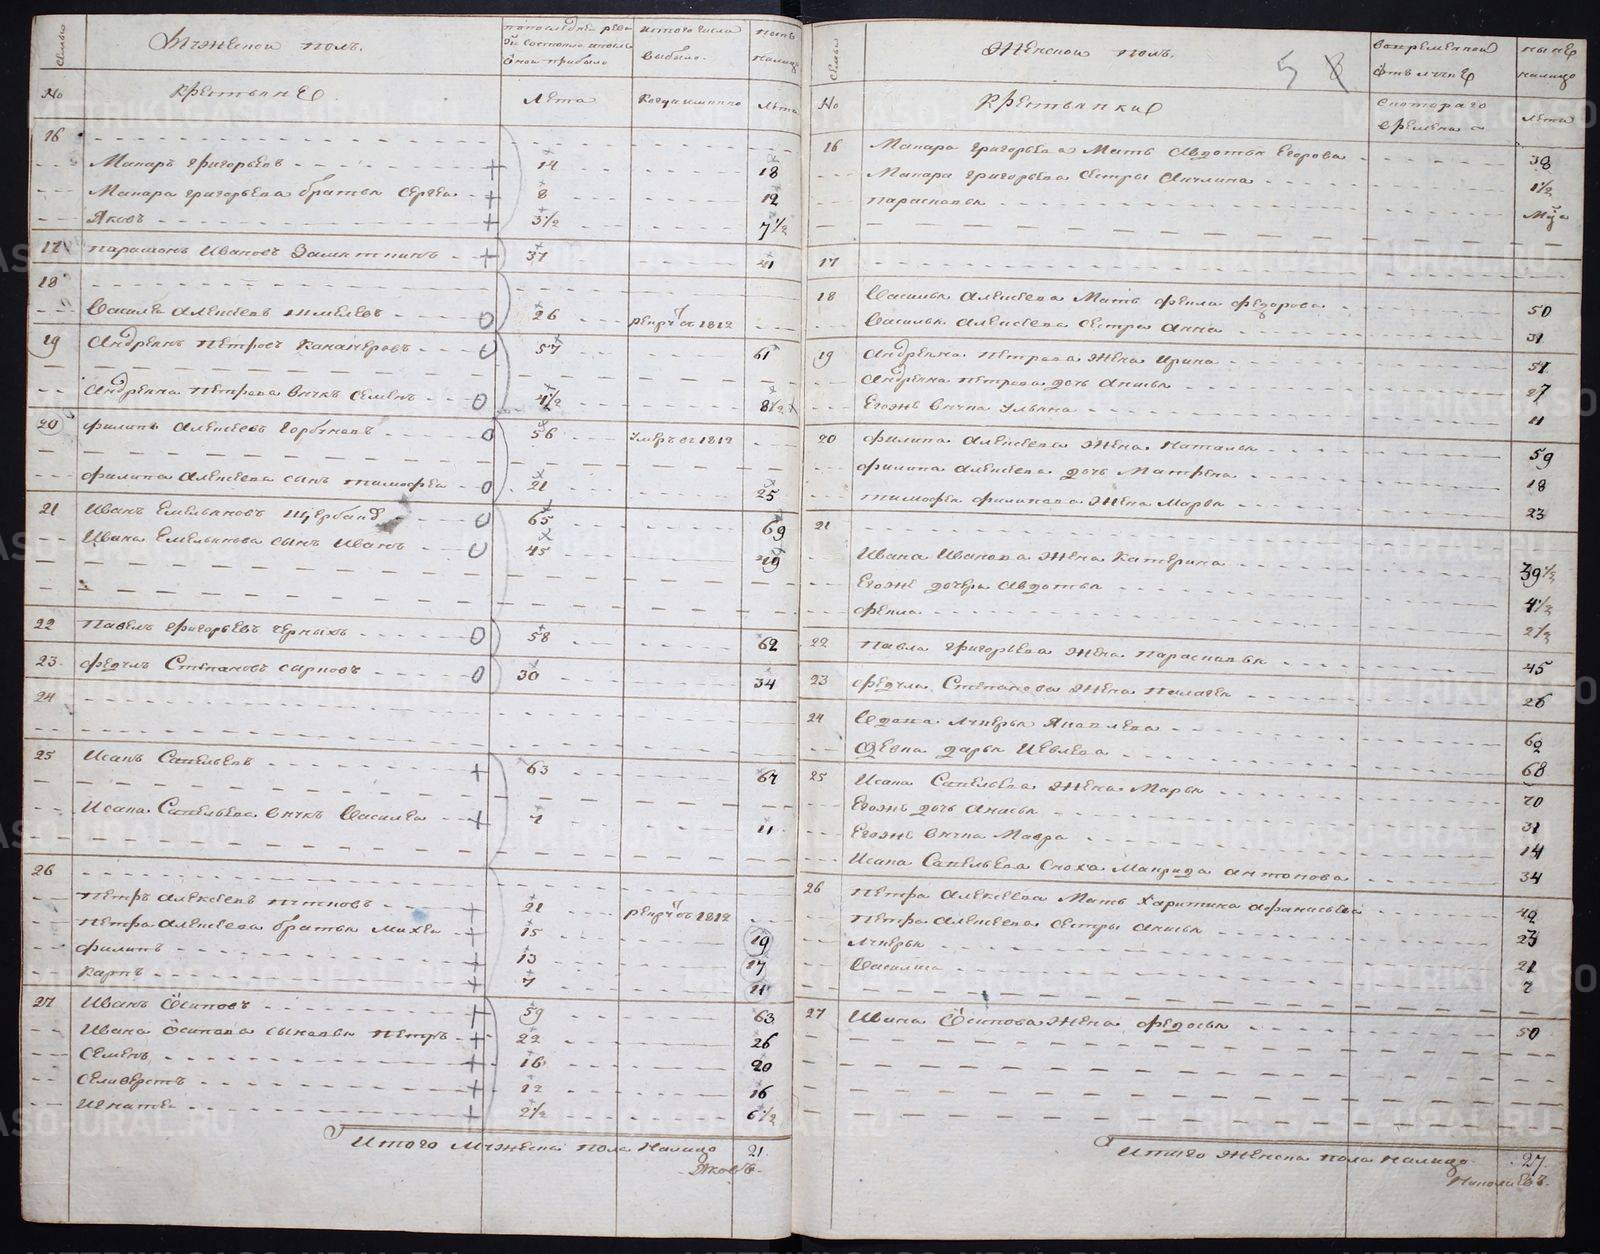 Семьи
Мужеской полъ.
по последней ревизіи состояло и после оной прибыло
изтого числа выбыло.
ныне налицо
No
крестьяне
Лета
когда имянно
Лета
16
Макаръ Григорьевъ 14 18
Макара Григорьева братья Сергеи 8 12
Яковъ 3 1/2 7 1/2
17 Парамонъ Ивановъ 37 41
18
Василеи Алексеевъ 26 рекрут въ 1812
19 Андреянъ Петровъ 57 61
Андреяна Петрова внукъ Семенъ 4 1/2 8 1/2
20 Филипъ Алексеевъ Горбуновъ 56 умеръ въ 1812
Филипа Алексеева сынъ Тимофеи 21 25
21 Иванъ Емельяновъ Щербаков 65 69
Ивана Емельянова сынъ Иванъ 45 49
22 Павелъ Григорьевъ Черныхъ 58 62
23 Федулъ Степановъ 30 34
24
25 Исакъ Савельевъ 63 67
Исака Савельева внукъ Василеи 7 11
26
Петръ Алексеевъ 21 рекрут въ 1812
Петра Алексеева братья Михеи 15 19
Филипъ 13 17
Карпъ 7 11
27 Иванъ Осиповъ 59 63
Ивана Осипова сыновья Петръ 22 26
Семенъ 16 20
Селиверстъ 12 16
Игнатеи 2 1/2 6 1/2
Итого мужеска пола налицо 21
Яковъ
Семьи
Женской полъ.
5 8
во временной отлучке
ныне налицо
No
крестьянки
с котораго времени
Лета
16 Макара Григорьева мать Авдотья Егорова 38
Макара Григорьева сестры Акулина 1 1/2
Парасковья
17
18 Василья Алексеева мать Фекла Федорова 50
Василья Алексеева сестра Анна 31
19 Андреяна Петрова жена Ирина 51
Андреяна Петрова дочь Анисья 27
Егожъ внука Ульяна 11
20 Филипа Алексеева жена Наталья 59
Филипа Алексеева дочь Матрена 18
Тимофея Филипова жена Марья 23
21
Ивана Иванова жена Катерина 39 1/2
Егоже дочери Авдотья 4 1/2
Фекла 2 1/2
22 Павла Григорьева жена Парасковья 45
23 Федула Степанова жена Пелагея 26
24 Вдова Лукерья Яковлева 62
Девка Дарья Иевлева 68
25 Исака Савельева жена Марья 70
Егожъ дочь Анисья 31
Егожъ внука Мавра 14
Исака Савельева сноха Маврида Антонова 34
26 Петра Алексеева мать Харитина Афанасьева 42
Петра Алексеева сестры Анисья 23
Лукерья 21
Василиса 7
27 Ивана Осипова жена Федосья 50
Итого женска пола налицо 27
METRIKI.GASO-URAL.RU